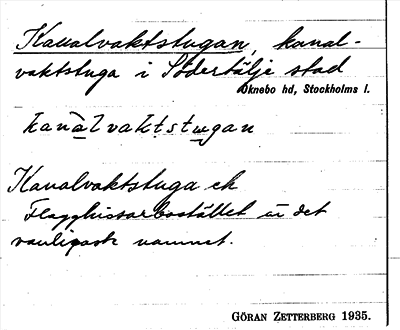 Kanalvaktstugan, kanal-
vaktstuga i Södertälje stad
Öknebo hd, Stockholms l.
kanàlvaktstugan
Kanalvaktstuga ek
Flagghissarbostället är det
vanligaste namnet.
GÖRAN ZETTERBERG 1935.